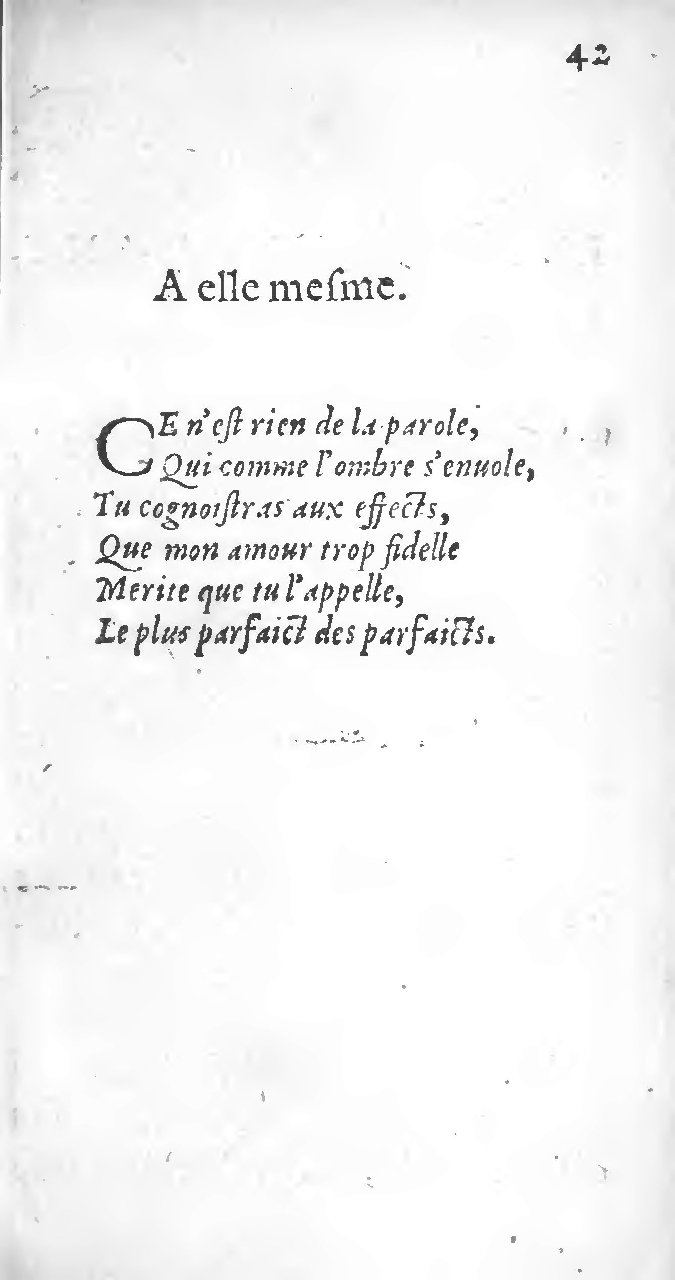 42
A elle meſme.
CE n'eſt rien de la parole,
Qui comme l'ombre s'enuole,
Tu cognoiſtras aux effects,
Que mon amour trop fidelle
Merite que tu l'appelle,
Le plus parfaict des parfaicts.